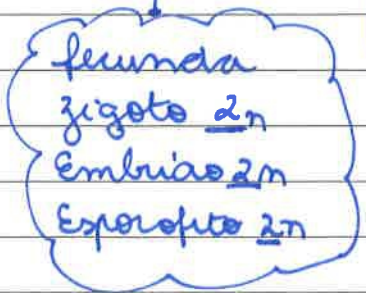 fecunda
zigoto 2n
Embrião 2n
Esporofito 2n